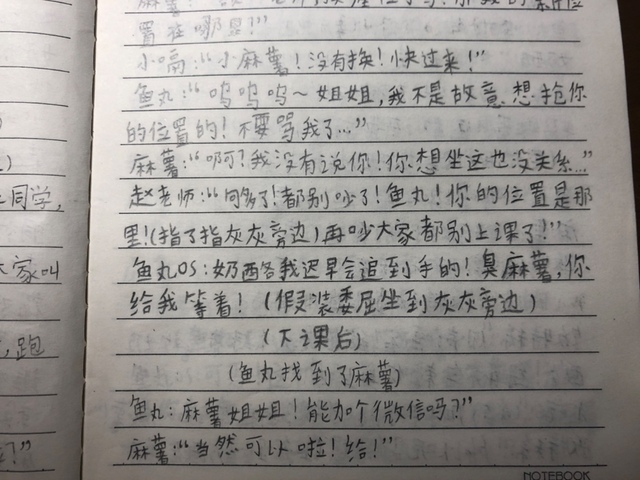 置在哪里?”
小嗝:“小麻薯!没有换!快过来!”
鱼丸:“呜呜呜~姐姐,我不是故意想抢你
的位置的!不要骂我了...”
麻薯:“啊?我没有说你!你想坐这也没关系...”
赵老师:“够了!都别吵了!鱼丸!你的位置是那
里!(指了指灰灰旁边)再吵大家都别上课了!”
鱼丸OS:奶西各我迟早会追到手的!臭麻薯,你
给我等着!(假装委屈坐到灰灰旁边)
(下课后)
(鱼丸找到了麻薯)
鱼丸:麻薯姐姐!能加个微信吗?”
麻薯:“当然可以啦!给!”
NOTEBOOK
同学,
家叫
,跑
?”